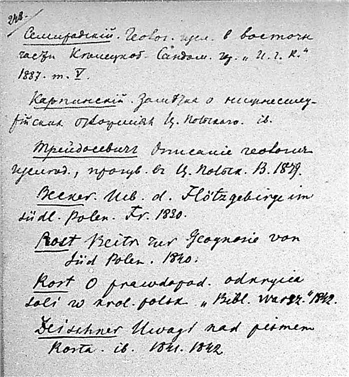 248.
Семирадскій. Геолог. изсл. в восточн.
части Кѣлецкой-Сандом. гу. „И. г. К."
1887. т. V.
Карпинскій. Замѣтка о
ib.
Трейдосевичъ Описаніе геологич.
изслѣд., произв. въ Ц. Польск. В. 1879.
Becker. Ueb. d. Flötzgebirge im
südl. Polen. Fr. 1830.
Rost Beitr. zur Geognosie von
Süd Polen. 1840.
Rost O prawdopod. odkrycia
soli w krol. polsk. „Bibl. Warsz." 1842.
Deischner Uwagi nad pismem
Rosta. ib. 1841. 1842